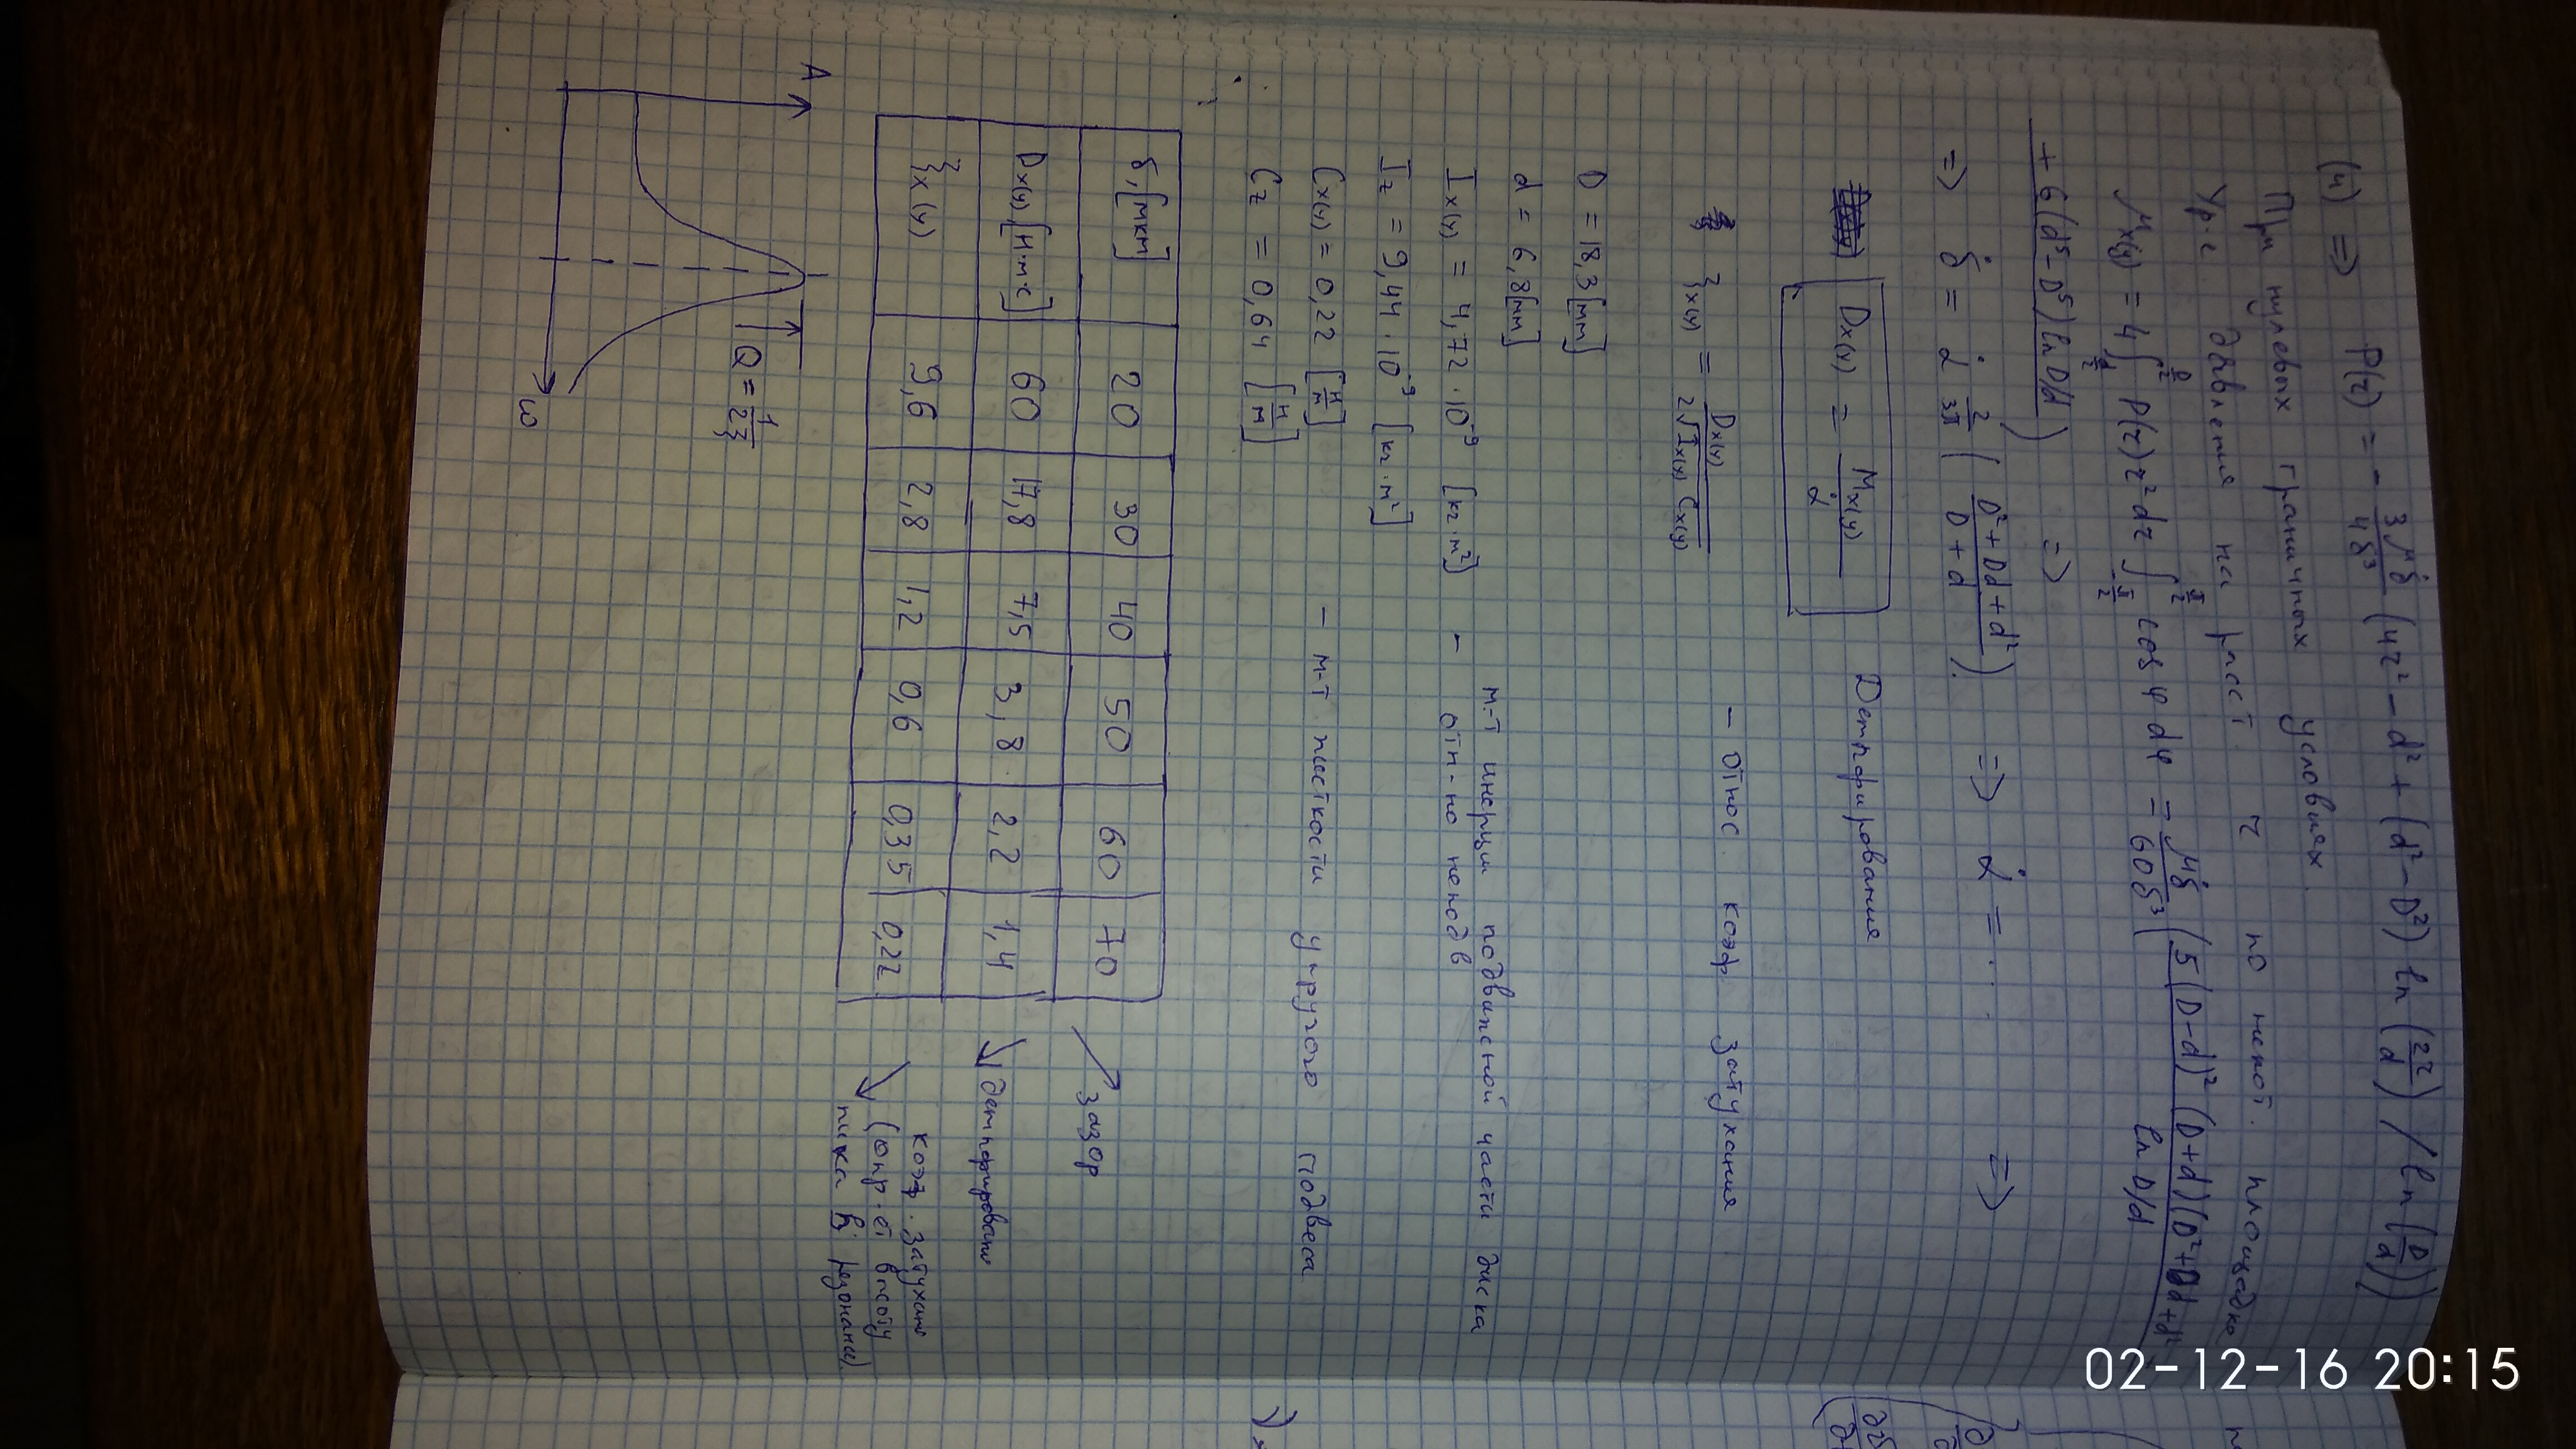 (4) => P(r) = - 3μδ̇ / 4δ³ (4r² - d² + (d² - D²) ln (2r/d) / ln (D/d))
При нулевых граничных условиях.
Ур-е давления на расст. r по некот. площадке
Mx(y) = 4 ∫ P(r) r² dr ∫ cos φ dφ = μδ̇ / 60δ³ ( 5(D-d)² (D+d)(D²+Dd+d²
ln D/d
+ 6(d⁵ - D⁵) ln D/d ) =>
=> δ̇ = α̇ 2/3π ( D²+Dd+d² / D+d ) => α̇ = ... =>
Dx(y) = Mx(y) / α̇ Демпфирование
ξx(y) = Dx(y) / 2√Ix(y) Cx(y) - относ. коэф. затухания
D = 18,3 [мм]
d = 6,8 [мм]
Ix(y) = 4,72 · 10⁻⁹ [кг·м²] - м-т инерции подвижной части диска
отн-но неподв
Iz = 9,44 · 10⁻⁹ [кг·м²]
Cx(y) = 0,22 [Н/м] - м-т жесткости упругого подвеса
Cz = 0,64 [Н/м]
δ, [мкм] 20 30 40 50 60 70 зазор
Dx(y) [Н·м·с] 60 17,8 7,5 3,8 2,2 1,4 демпфирование
ξx(y) 9,6 2,8 1,2 0,6 0,35 0,22 коэф. затухания
(опр-ет высоту
пика в резонансе)
A
Q = 1/2ξ
ω
02-12-16 20:15